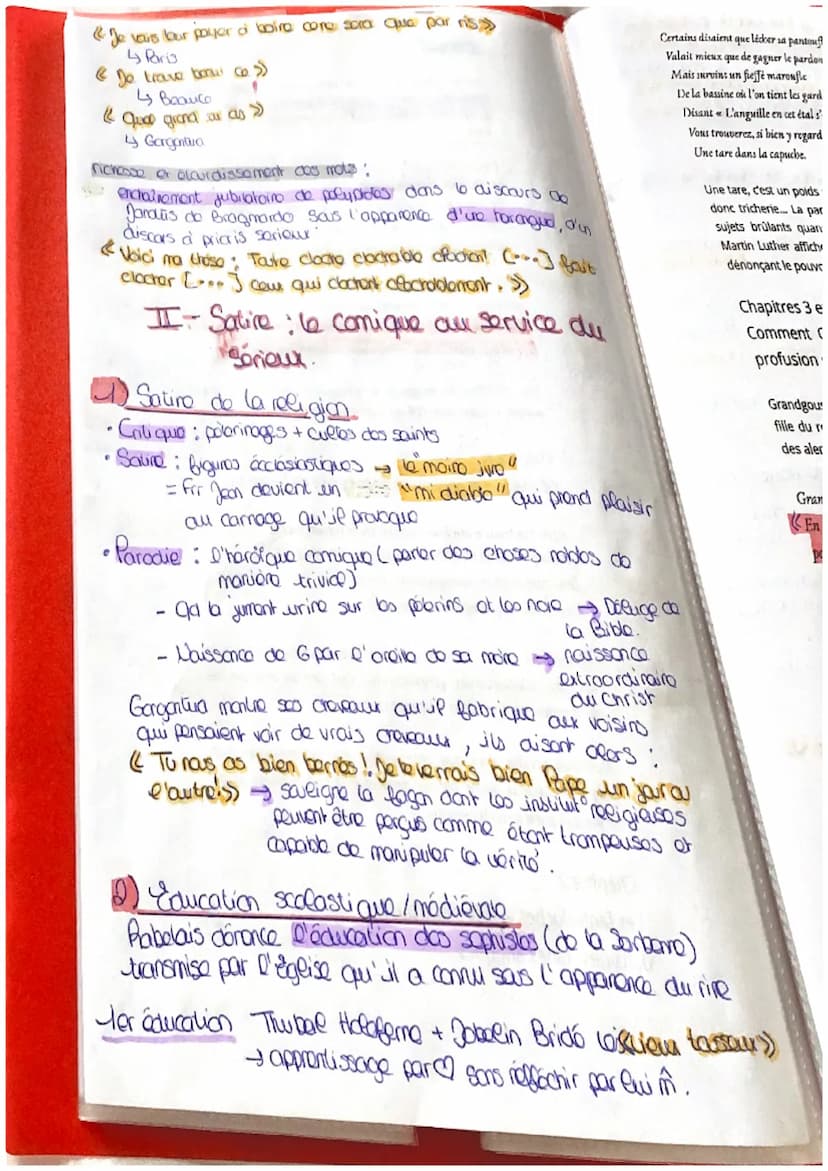 « Je vais leur payer à boire cone sera que par ris »
↳ Paris
« Je trouve beau ce »
↳ Beauce
« Que grand tu as »
↳ Gargantua
richesse et étourdissement des mots :
enchainement jubilatoire de polyptotes dans le discours de
Janotus de Bragmardo sous l'apparence d'une harangue, d'un
discours à priori sérieux
« Voici ma thèse : Toute cloche clochable clochant [...] fait
clocher [...] ceux qui clochent clochablement. »
II - Satire : le comique au service du
sérieux.
1) Satire de la religion
• Critique : pèlerinages + cultes des saints
• Satire : figures écclésiastiques → "le moine ivre"
= Frr Jean devient un "mi diable" qui prend plaisir
au carnage qu'il provoque
• Parodie : l'héroïque comique (parler des choses nobles de
manière trivial)
- Qd la jument urine sur les pèlerins et les noie → Déluge de
la Bible.
- Naissance de G par l'oreille de sa mère → naissance
extraordinaire
du Christ
Gargantua montre ses chevaux qu'il fabrique aux voisins
qui pensaient voir de vrais chevaux, ils disent alors :
« Tu nous as bien bernés ! Je te verrais bien Pape un jour ou
l'autre ! » → souligne la façon dont les institut° religieuses
peuvent être perçus comme étant trompeuses et
capable de manipuler la vérité.
2) Éducation scolastique / médiévale
Rabelais dénonce l'éducation des sophistes (de la Sorbonne)
transmise par l'Église qu'il a connu sous l'apparence du rire
1er éducation Thubal Holoferne + Jobelin Bridé « vieux tousseux »
→ apprentissage par ♡ sans réfléchir par lui m̂.
Certains disaient que lécher sa pantouf
Valait mieux que de gagner le pardon
Mais survint un fieffé maroufle
De la bassine où l'on tient les gard
Disant « L'anguille en cet étal s'
Vous trouverez, si bien y regard
Une tare dans la capuche.
Une tare, c'est un poids
donc tricherie... La par
sujets brûlants quan
Martin Luther affich
dénonçant le pouvo
Chapitres 3 e
Comment
profusion
Grandgous
fille du r
des aler
Gran
« En